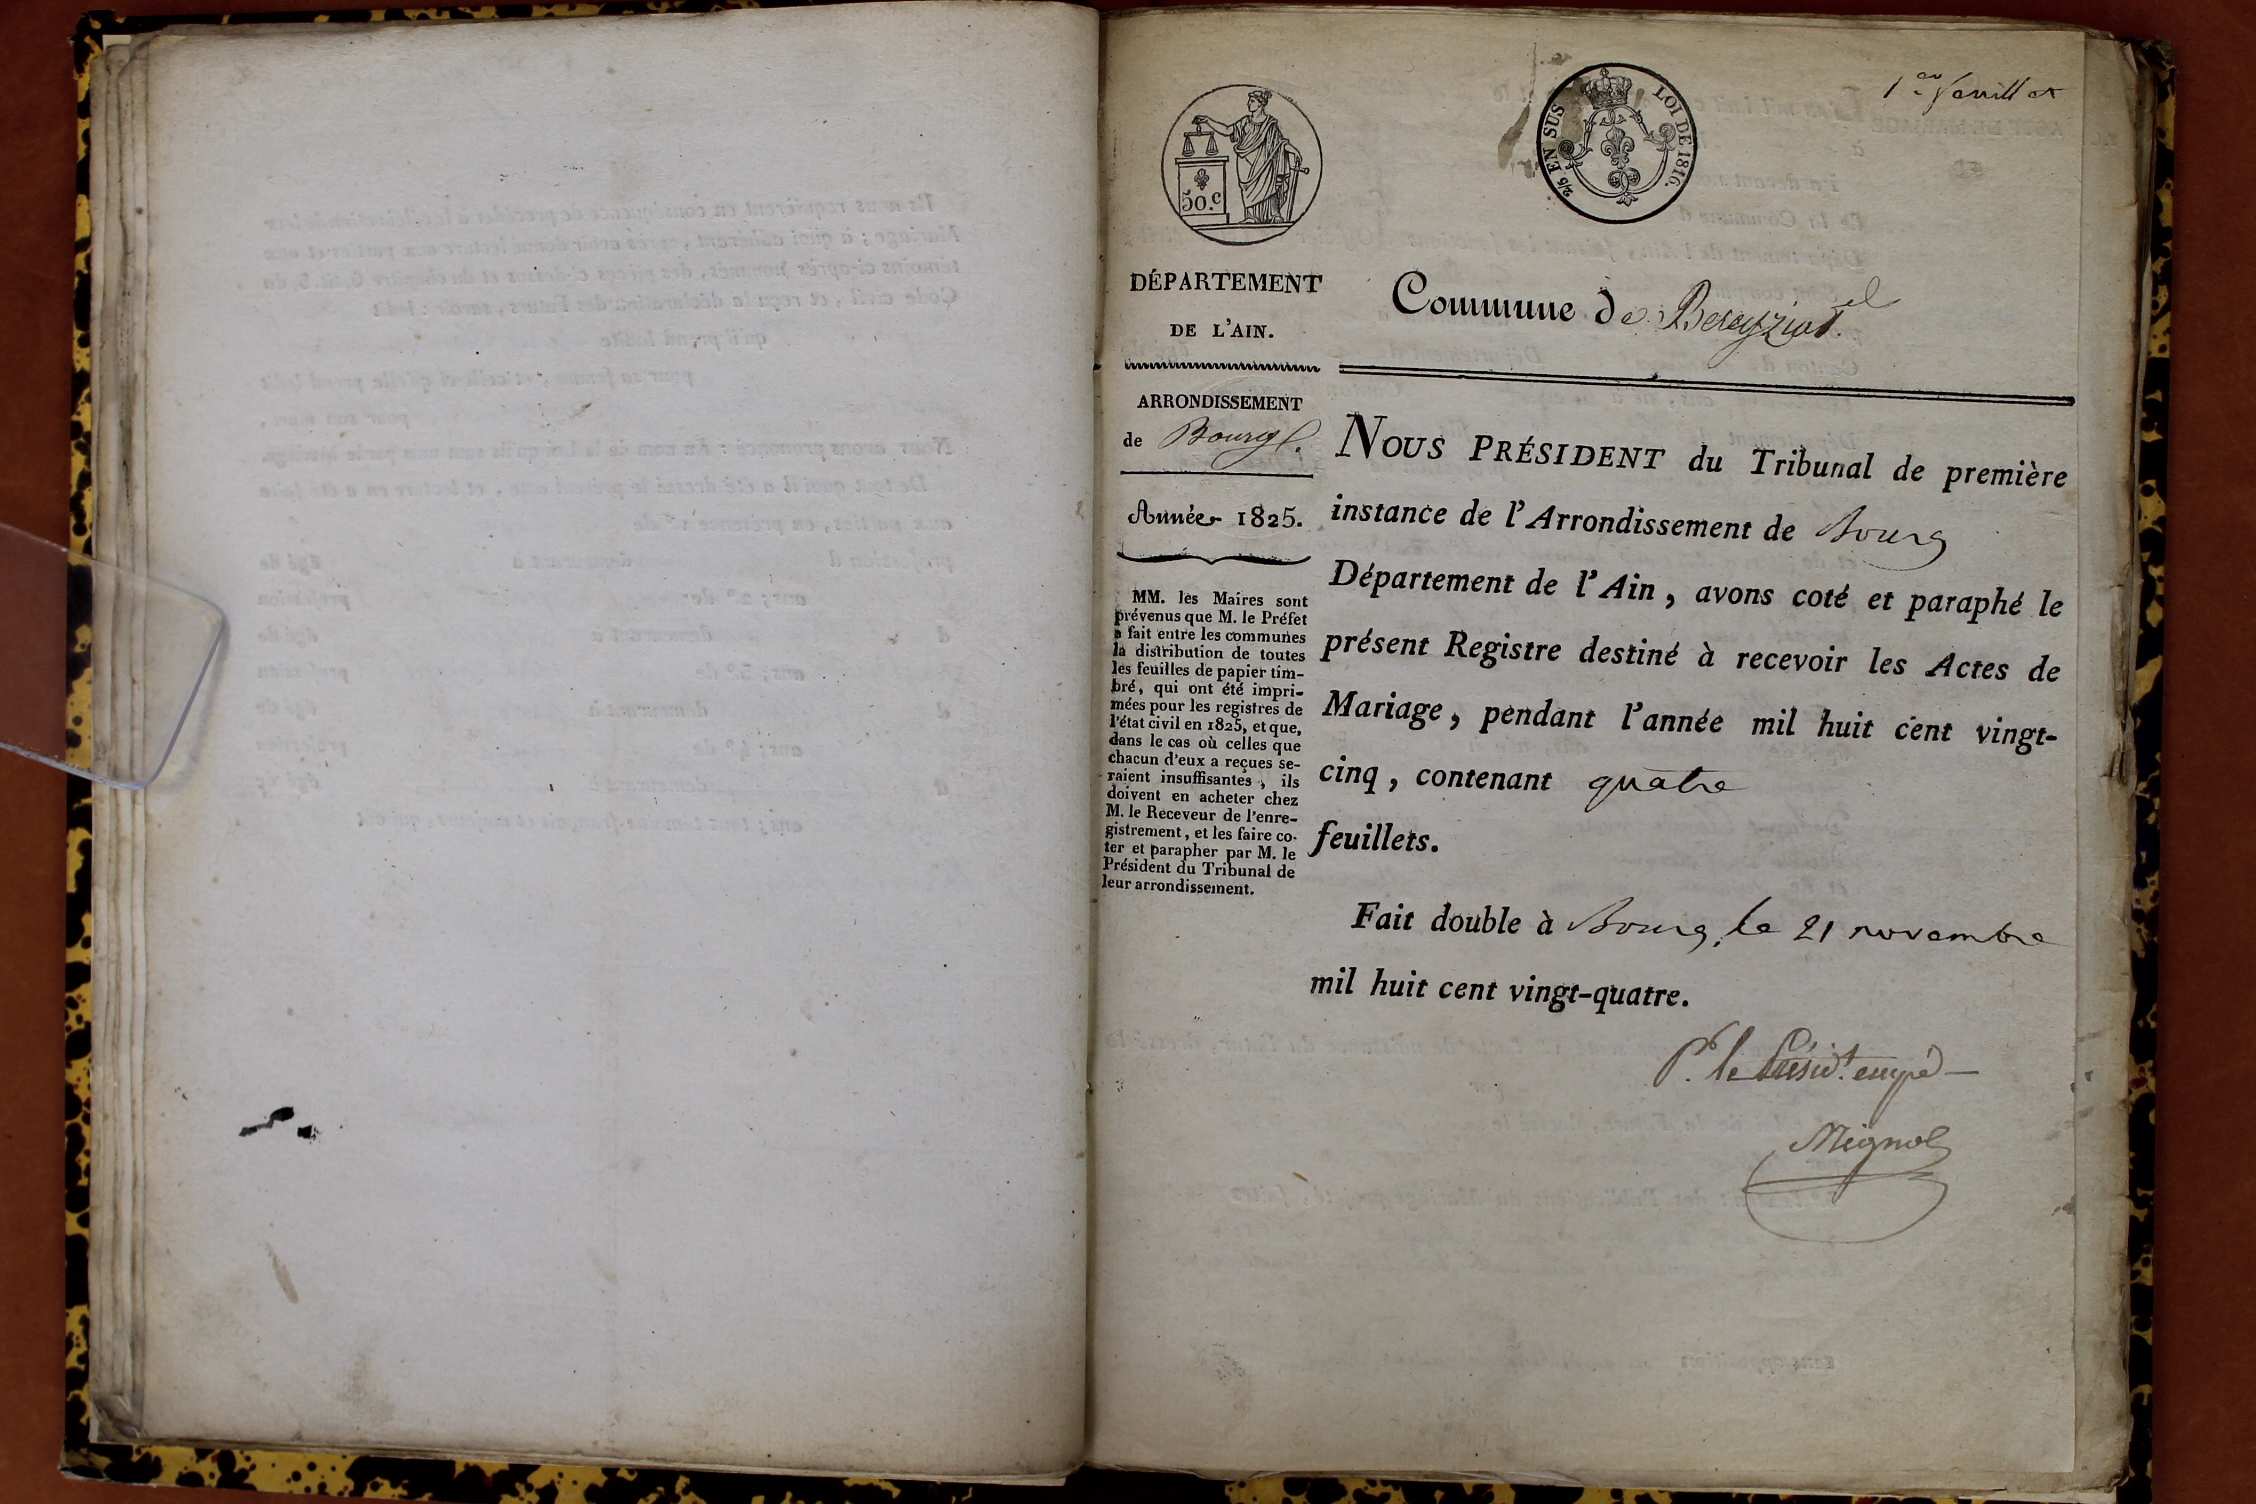 1er feuillet
50.c
2/5 EN SUS LOI DE 1816.
DÉPARTEMENT
DE L'AIN.
ARRONDISSEMENT
de Bourg
Année 1825.
MM. les Maires sont
prévenus que M. le Préfet
a fait entre les communes
la distribution de toutes
les feuilles de papier tim-
bré, qui ont été impri-
mées pour les registres de
l'état civil en 1825, et que,
dans le cas où celles que
chacun d'eux a reçues se-
raient insuffisantes, ils
doivent en acheter chez
M. le Receveur de l'enre-
gistrement, et les faire co-
ter et parapher par M. le
Président du Tribunal de
leur arrondissement.
Commune de Bereyziat
NOUS PRÉSIDENT du Tribunal de première
instance de l'Arrondissement de Bourg
Département de l'Ain, avons coté et paraphé le
présent Registre destiné à recevoir les Actes de
Mariage, pendant l'année mil huit cent vingt-
cinq, contenant quatre
feuillets.
Fait double à Bourg, le 21 novembre
mil huit cent vingt-quatre.
Pr. le Présidt. empé